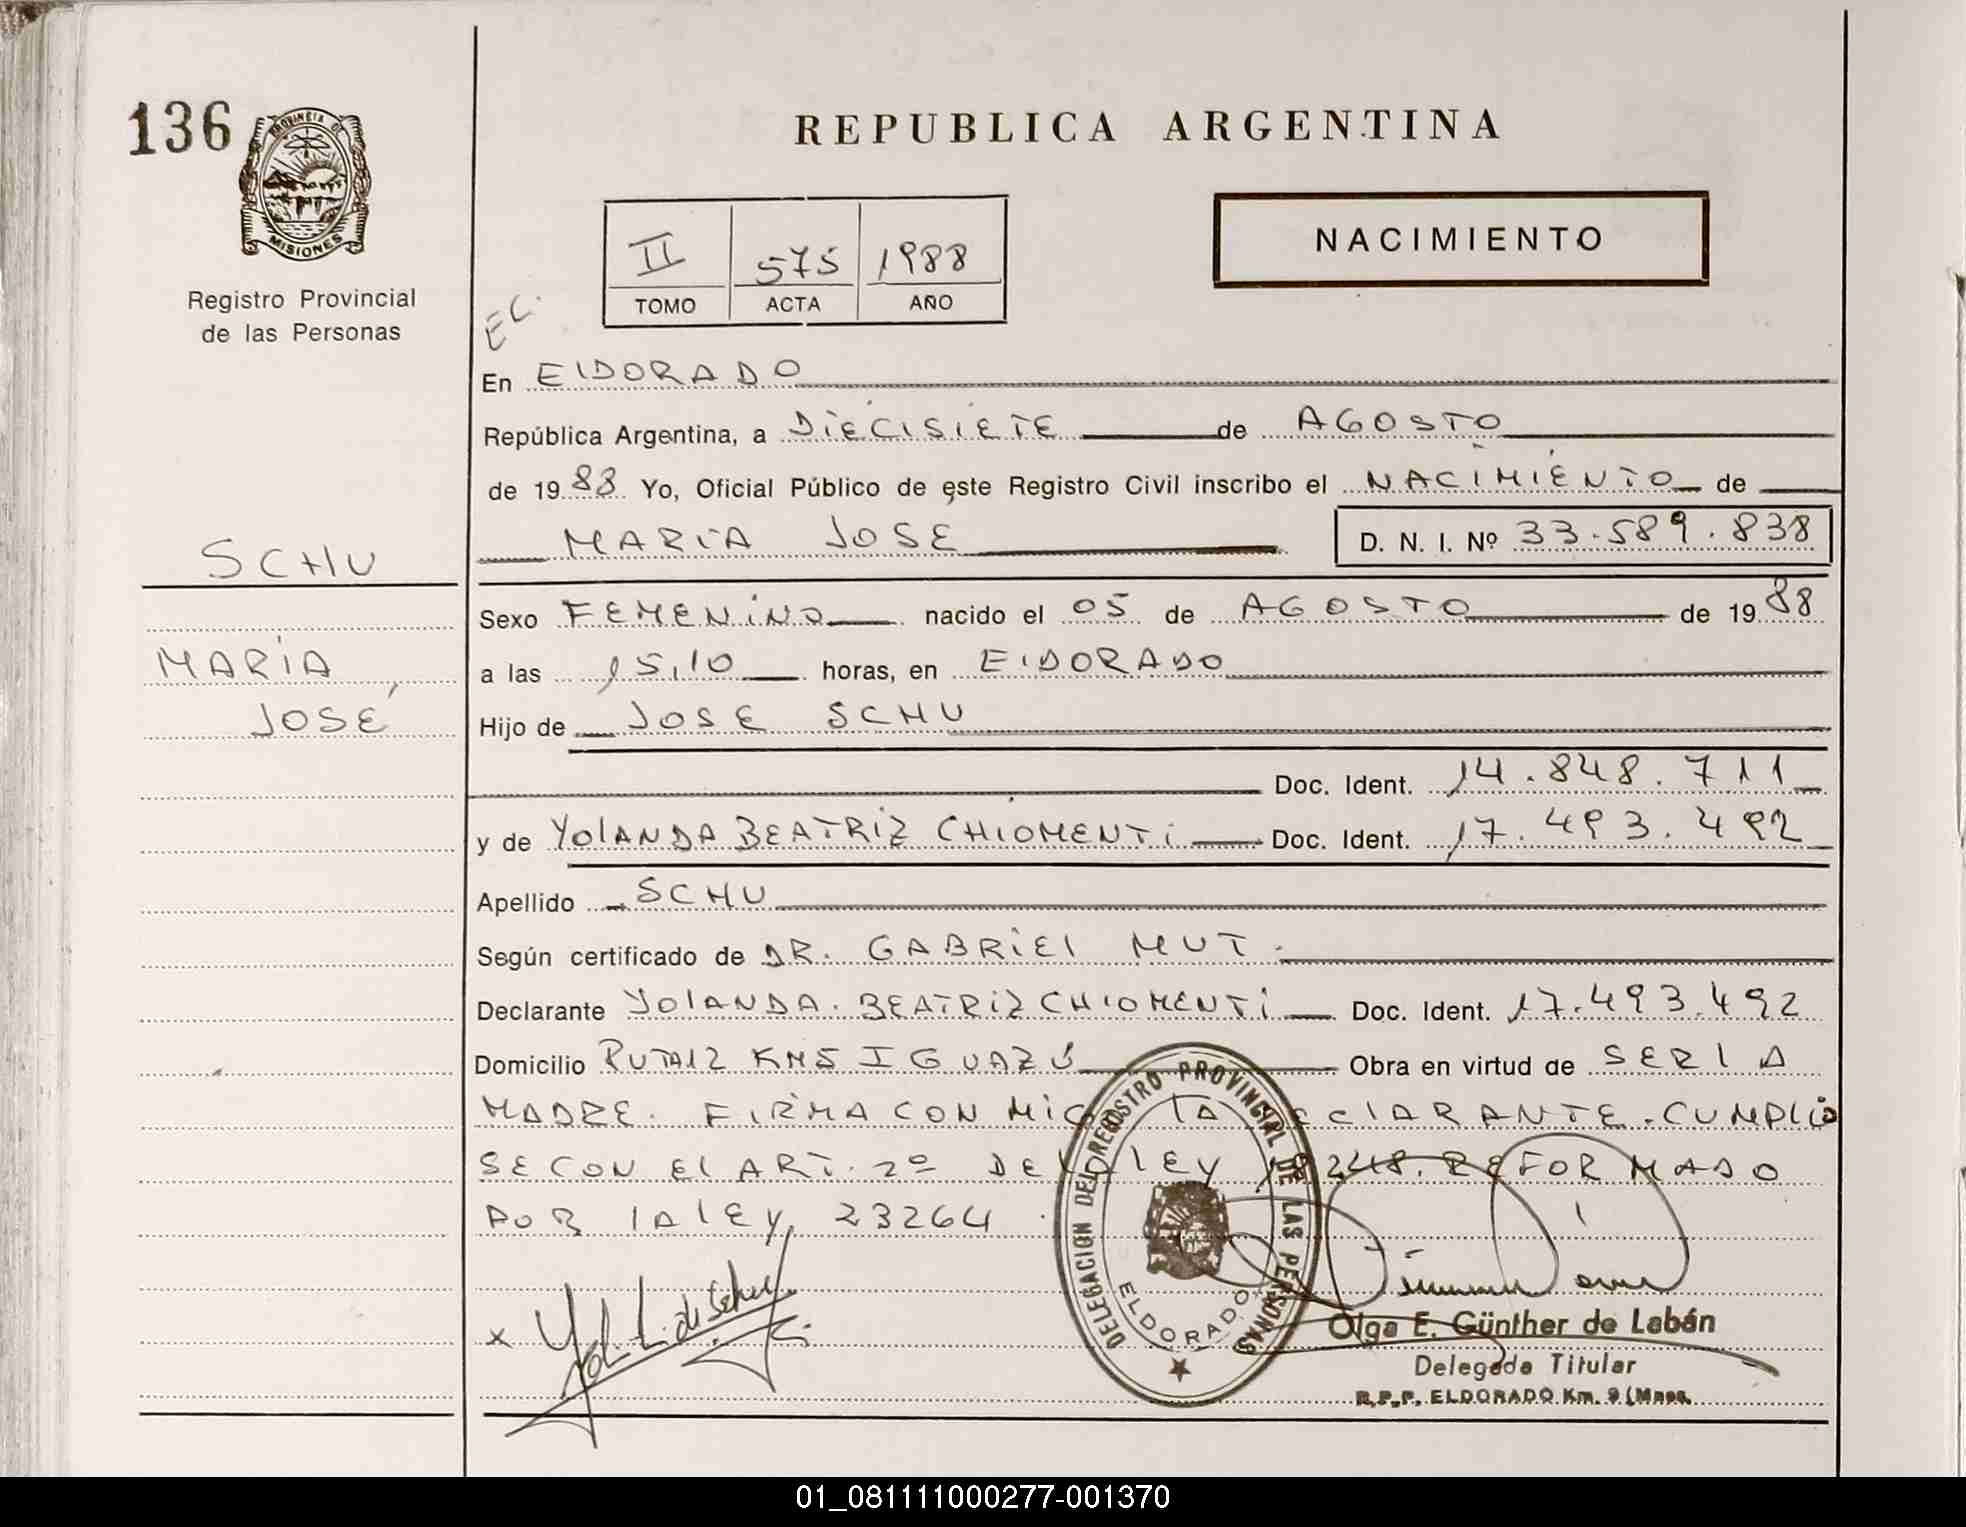 136
PROVINCIA DE
MISIONES
Registro Provincial
de las Personas
REPUBLICA ARGENTINA
II 575 1988
TOMO ACTA AÑO
NACIMIENTO
EC.
En ElDORADO
República Argentina, a DiECISIETE de AGOSTO
de 1988 Yo, Oficial Público de este Registro Civil inscribo el NACIMIENTO de
MARIA JOSE D. N. I. Nº 33.589.838
SCHU
MARIA
JOSÉ
Sexo FEMENINO nacido el 05 de AGOSTO de 1988
a las 15,10 horas, en ElDORADO
Hijo de JOSE SCHU
Doc. Ident. 14.848.711
y de YOlANDA BEATRIZ CHIOMENTi Doc. Ident. 17.493.492
Apellido SCHU
Según certificado de DR. GABRIEl MUT.
Declarante YOlANDA. BEATRIZ CHIOMENTi Doc. Ident. 17.493.492
Domicilio RUTA12 KM5 IGUAZÚ Obra en virtud de SER lA
MADRE. FIRMA CON MIGO lA DEClARANTE. CUMPLIO
SE CON El ART. 2º DE LEY 248. REFORMADO
POR lA lEY, 23264.
x Yol. L. de Schu
DELEGACION DEL REGISTRO PROVINCIAL DE LAS PERSONAS
ELDORADO
Olga E. Günther de Labán
Delegada Titular
R.P.P. ELDORADO Km. 9 (Mnes.
01_081111000277-001370